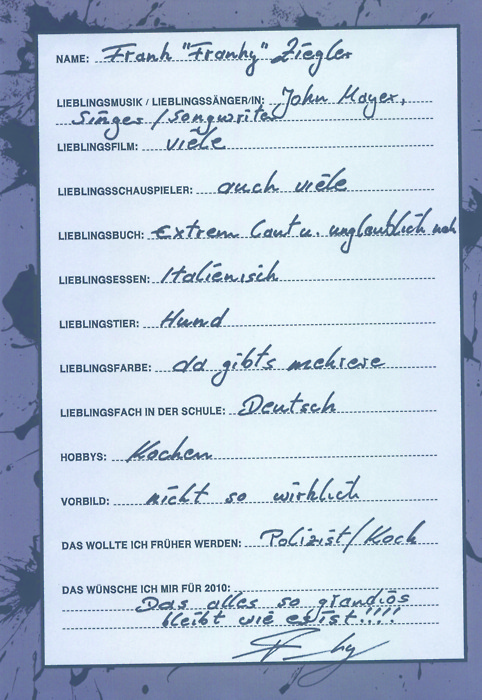 NAME: Frank "Franky" Ziegler
LIEBLINGSMUSIK / LIEBLINGSSÄNGER/IN: John Mayer,
Singer / Songwriter
LIEBLINGSFILM: viele
LIEBLINGSSCHAUSPIELER: auch viele
LIEBLINGSBUCH: Extrem laut u. unglaublich nah
LIEBLINGSESSEN: Italienisch
LIEBLINGSTIER: Hund
LIEBLINGSFARBE: da gibts mehrere
LIEBLINGSFACH IN DER SCHULE: Deutsch
HOBBYS: Kochen
VORBILD: nicht so wirklich
DAS WOLLTE ICH FRÜHER WERDEN: Polizist/Koch
DAS WÜNSCHE ICH MIR FÜR 2010:
Das alles so grandiös
bleibt wie es ist!!!!